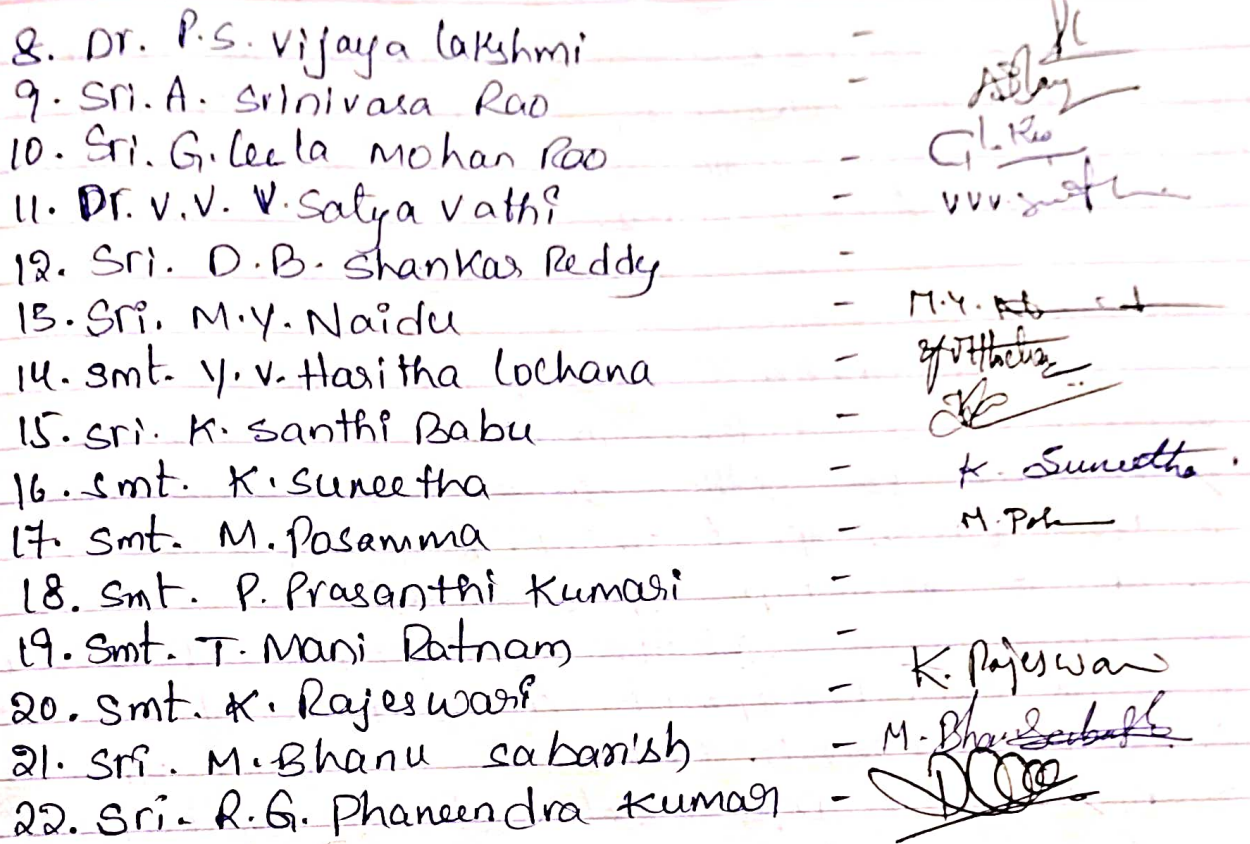 8. Dr. P.S. Vijaya lakshmi -
9. Sri. A. Srinivasa Rao -
10. Sri. G. Leela Mohan Rao - G.L. Rao
11. Dr. V.V.V. Satya vathi - VVV
12. Sri. D.B. Shankar Reddy -
13. Sri. M.Y. Naidu - M.Y.
14. Smt. Y.V. Haritha lochana -
15. Sri. K. Santhi Babu -
16. Smt. K. Suneetha - K. Suneetha.
17. Smt. M. Posamma - M. Pos
18. Smt. P. Prasanthi Kumari -
19. Smt. T. Mani Ratnam -
20. Smt. K. Rajeswari - K. Rajeswari
21. Sri. M. Bhanu sabarish - M. Bhanu
22. Sri. R.G. Phaneendra Kumar -